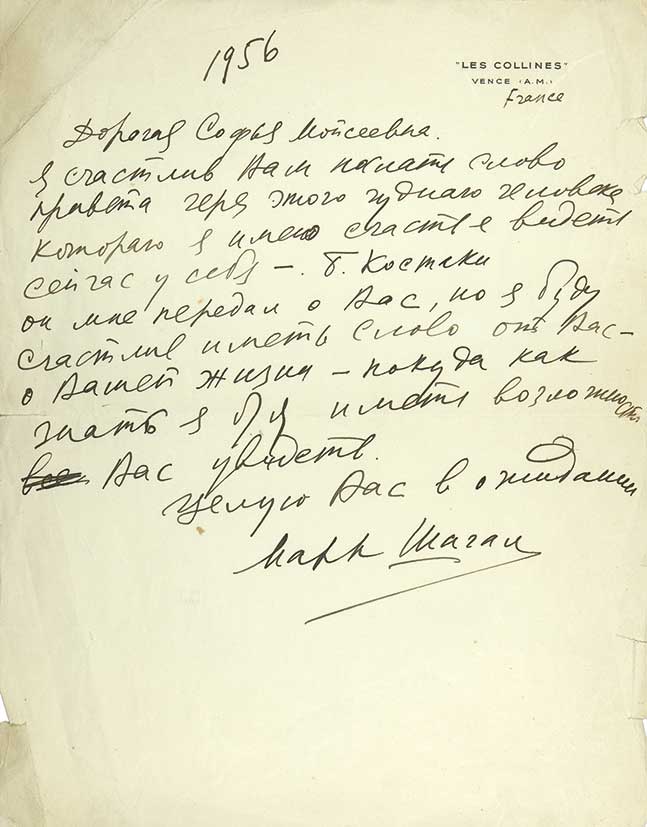 1956
"LES COLLINES"
VENCE (A.M.)
France
Дорогая Софья Мойсеевна.
я счастлив Вам послать слово
привета через этого чуднаго человека
котораго я имею счастье видеть
сейчас у себя – . Костаки
он мне передал о Вас, но я буду
счастлив иметь слово от Вас –
о Вашей жизни – покуда как
знать я буду иметь возможность
Вас увидеть.
Целую Вас в ожидании
Марк Шагал